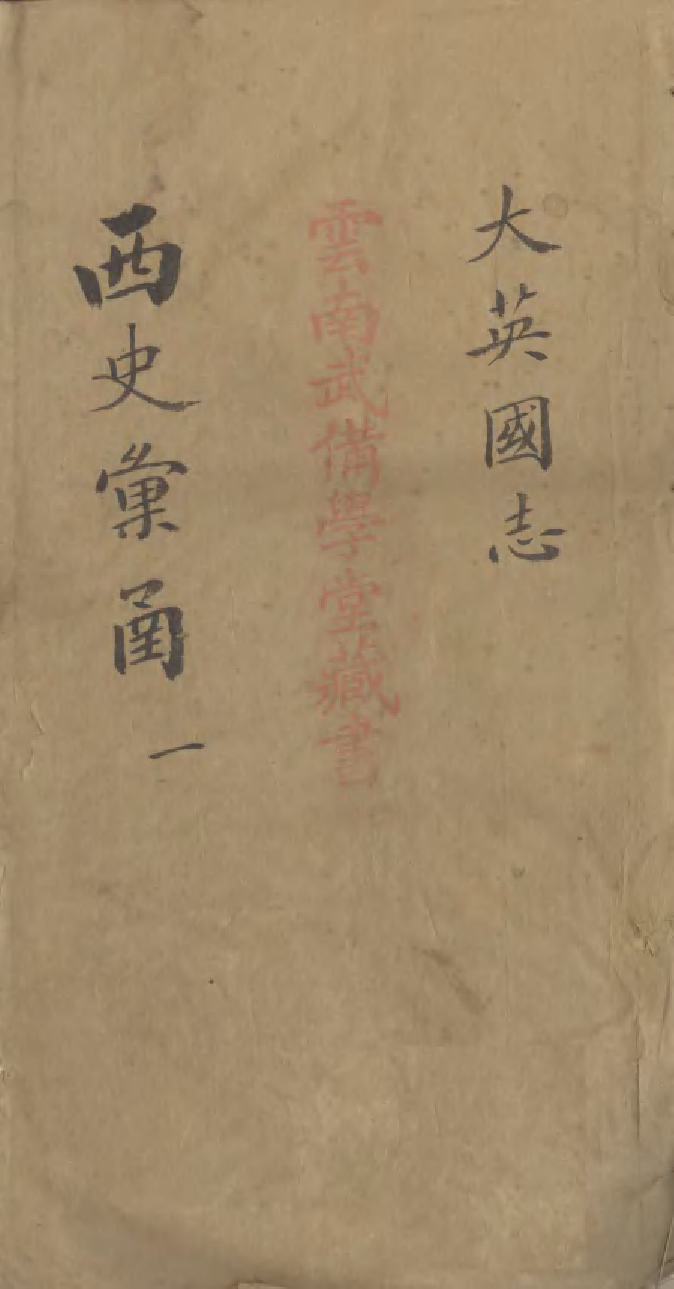 大英國志
雲南武備學堂藏書
西史彙函一